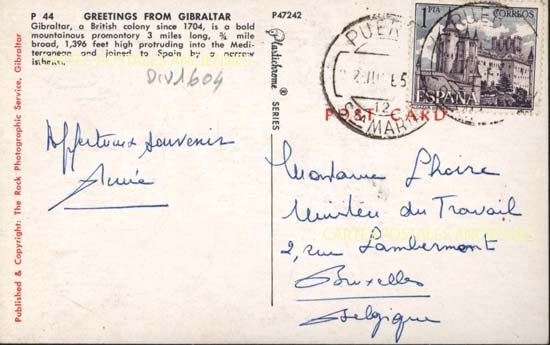 P 44 GREETINGS FROM GIBRALTAR
Gibraltar, a British colony since 1704, is a bold
mountainous promontory 3 miles long, ¾ mile
broad, 1,396 feet high protruding into the Medi-
terranean and joined to Spain by a narrow
isthmus.
Div1604
Affectueux souvenir
Annie
Published & Copyright: The Rock Photographic Service, Gibraltar
P47242
Plastichrome ® SERIES
POST CARD
1 PTA CORREOS
ESPAÑA
PUER
STA MARI
12
Madame
Ministère du Travail
2, rue Lambermont
Bruxelles
Belgique